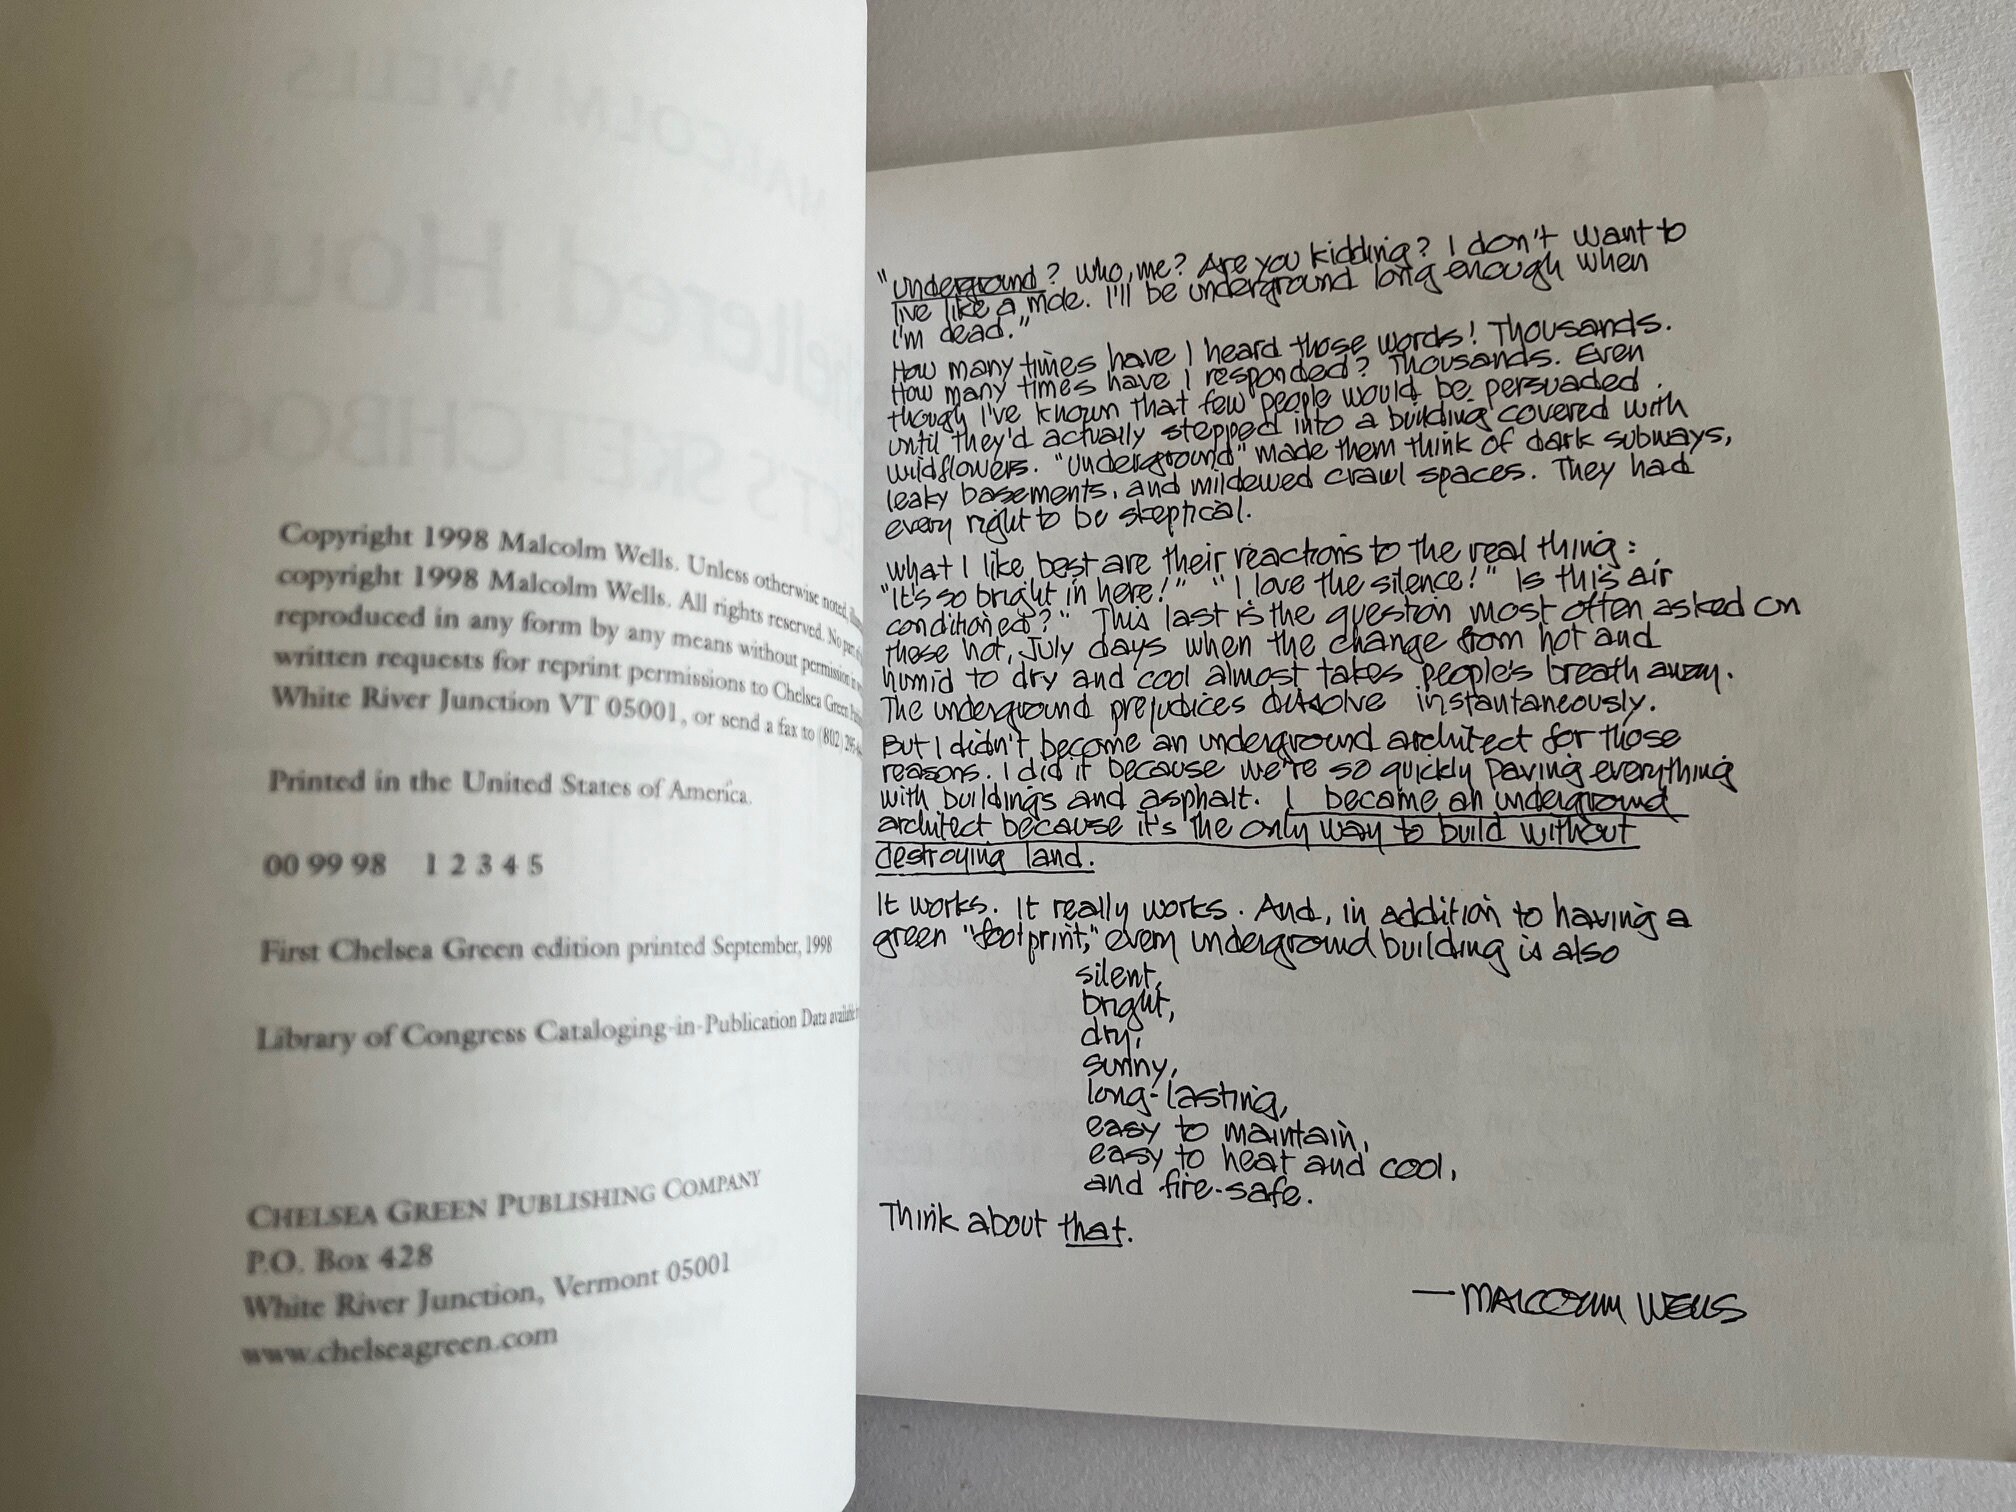 Copyright 1998 Malcolm Wells. Unless otherwise noted,
copyright 1998 Malcolm Wells. All rights reserved. No part
reproduced in any form by any means without permission in
written requests for reprint permissions to Chelsea Green
White River Junction VT 05001, or send a fax to (802) 295-
Printed in the United States of America.
00 99 98 1 2 3 4 5
First Chelsea Green edition printed September, 1998
Library of Congress Cataloging-in-Publication Data available
CHELSEA GREEN PUBLISHING COMPANY
P.O. Box 428
White River Junction, Vermont 05001
www.chelseagreen.com
"Underground? Who, me? Are you kidding? I don't want to
live like a mole. I'll be underground long enough when
I'm dead."
How many times have I heard those words! Thousands.
How many times have I responded? Thousands. Even
though I've known that few people would be persuaded
until they'd actually stepped into a building covered with
wildflowers. "Underground" made them think of dark subways,
leaky basements, and mildewed crawl spaces. They had
every right to be skeptical.
What I like best are their reactions to the real thing:
"It's so bright in here!" "I love the silence!" Is this air
conditioned?" This last is the question most often asked on
those hot, July days when the change from hot and
humid to dry and cool almost takes people's breath away.
The underground prejudices dissolve instantaneously.
But I didn't become an underground architect for those
reasons. I did it because we're so quickly paving everything
with buildings and asphalt. I became an underground
architect because it's the only way to build without
destroying land.
It works. It really works. And, in addition to having a
green "footprint," every underground building is also
silent,
bright,
dry,
sunny,
long-lasting,
easy to maintain,
easy to heat and cool,
and fire-safe.
Think about that.
— MALCOLM WELLS